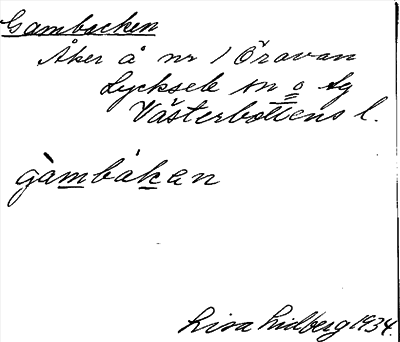 Gambacken
Åker å nr 1 Öravan
Lycksele sn o tg
Västerbottens l.
gàmbáken
Lisa Lidberg 1934.